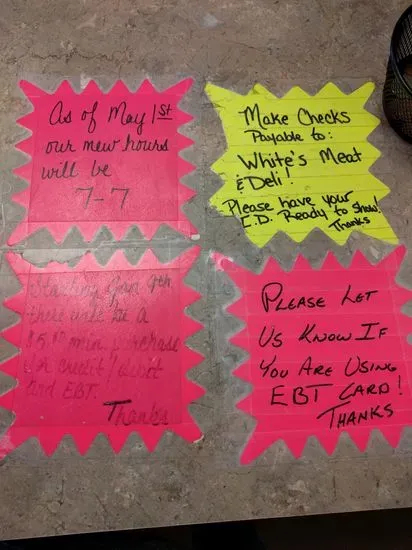 As of May 1st
our new hours
will be
7-7
Make Checks
Payable to:
White's Meat
& Deli!
Please have your
I.D. Ready to show!
Thanks
Starting Jan 9th
there will be a
$5.00 min. purchase
for credit/debit
and EBT.
Thanks
Please Let
Us Know If
You Are Using
EBT Card!
Thanks